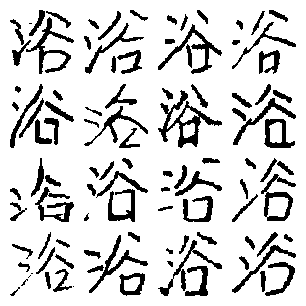 浴浴浴浴
浴浴浴浴
浴浴浴浴
浴浴浴浴